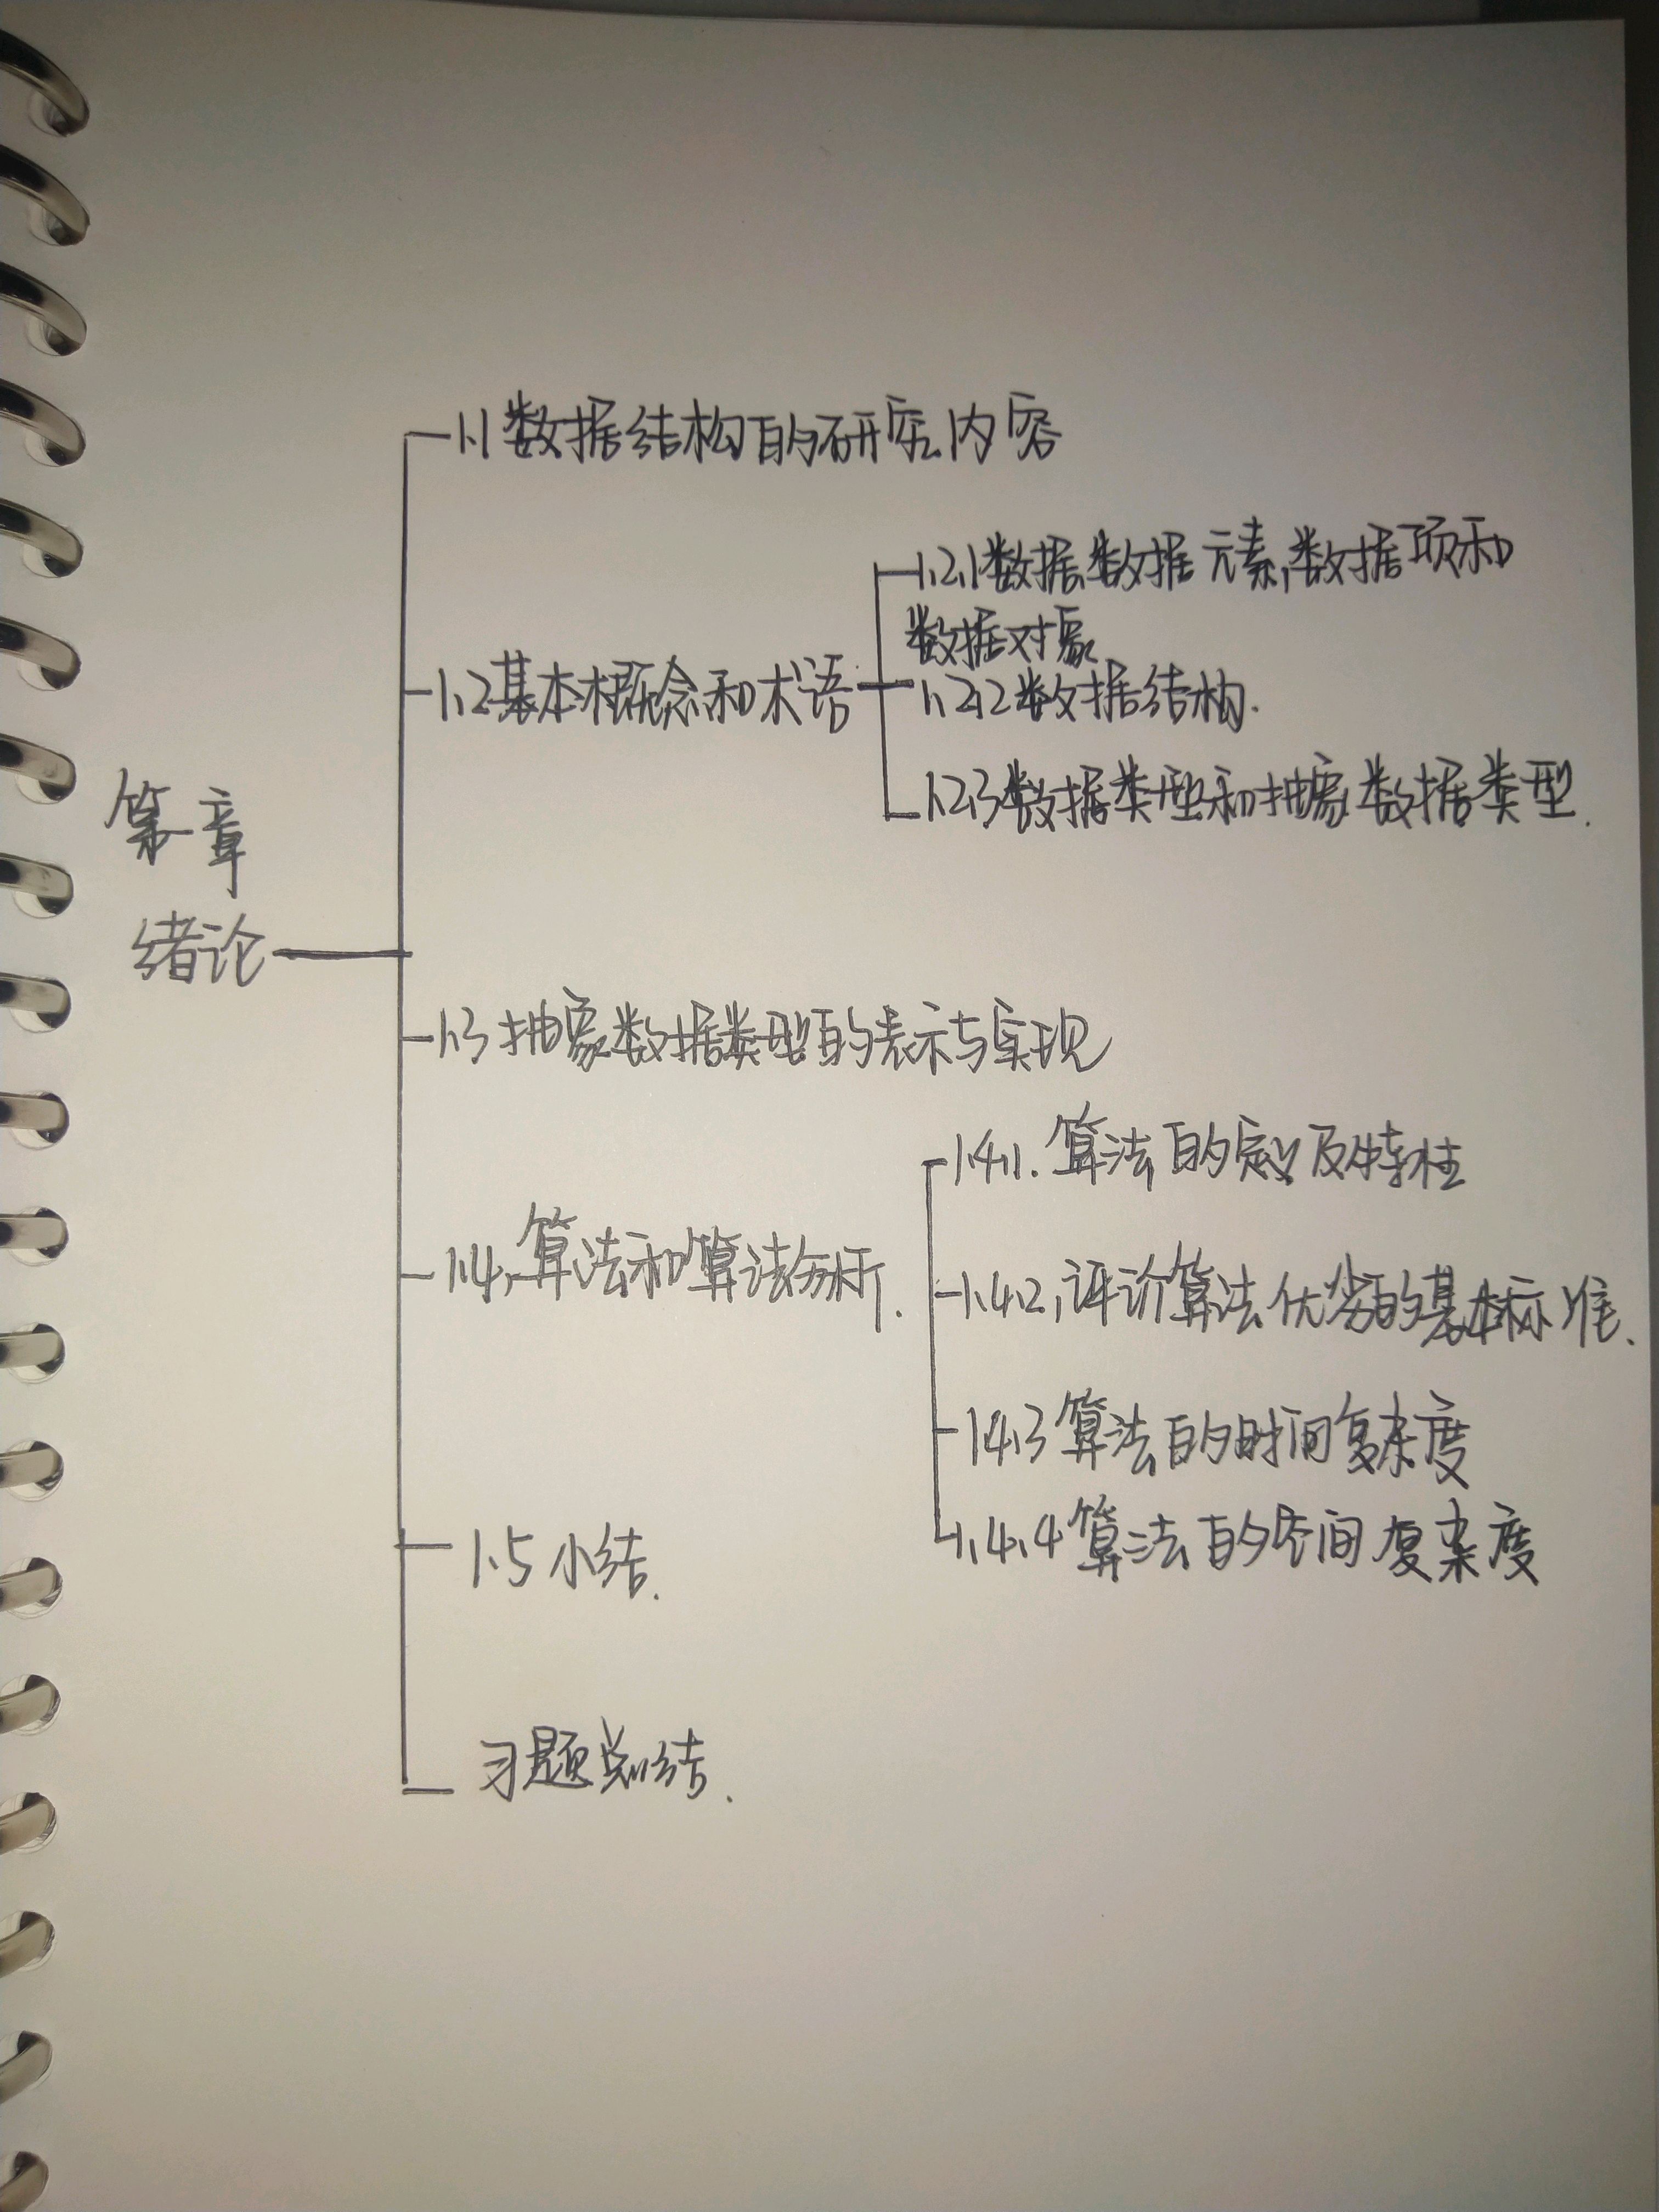 1.1 数据结构的研究内容
1.2.1 数据、数据元素、数据项和
数据对象
1.2 基本概念和术语
1.2.2 数据结构.
1.2.3 数据类型和抽象数据类型.
第一章
绪论
1.3 抽象数据类型的表示与实现
1.4.1. 算法的定义及特性
1.4、算法和算法分析.
1.4.2、评价算法优劣的基本标准.
1.4.3 算法的时间复杂度
1.4.4 算法的空间复杂度
1.5 小结.
习题总结.